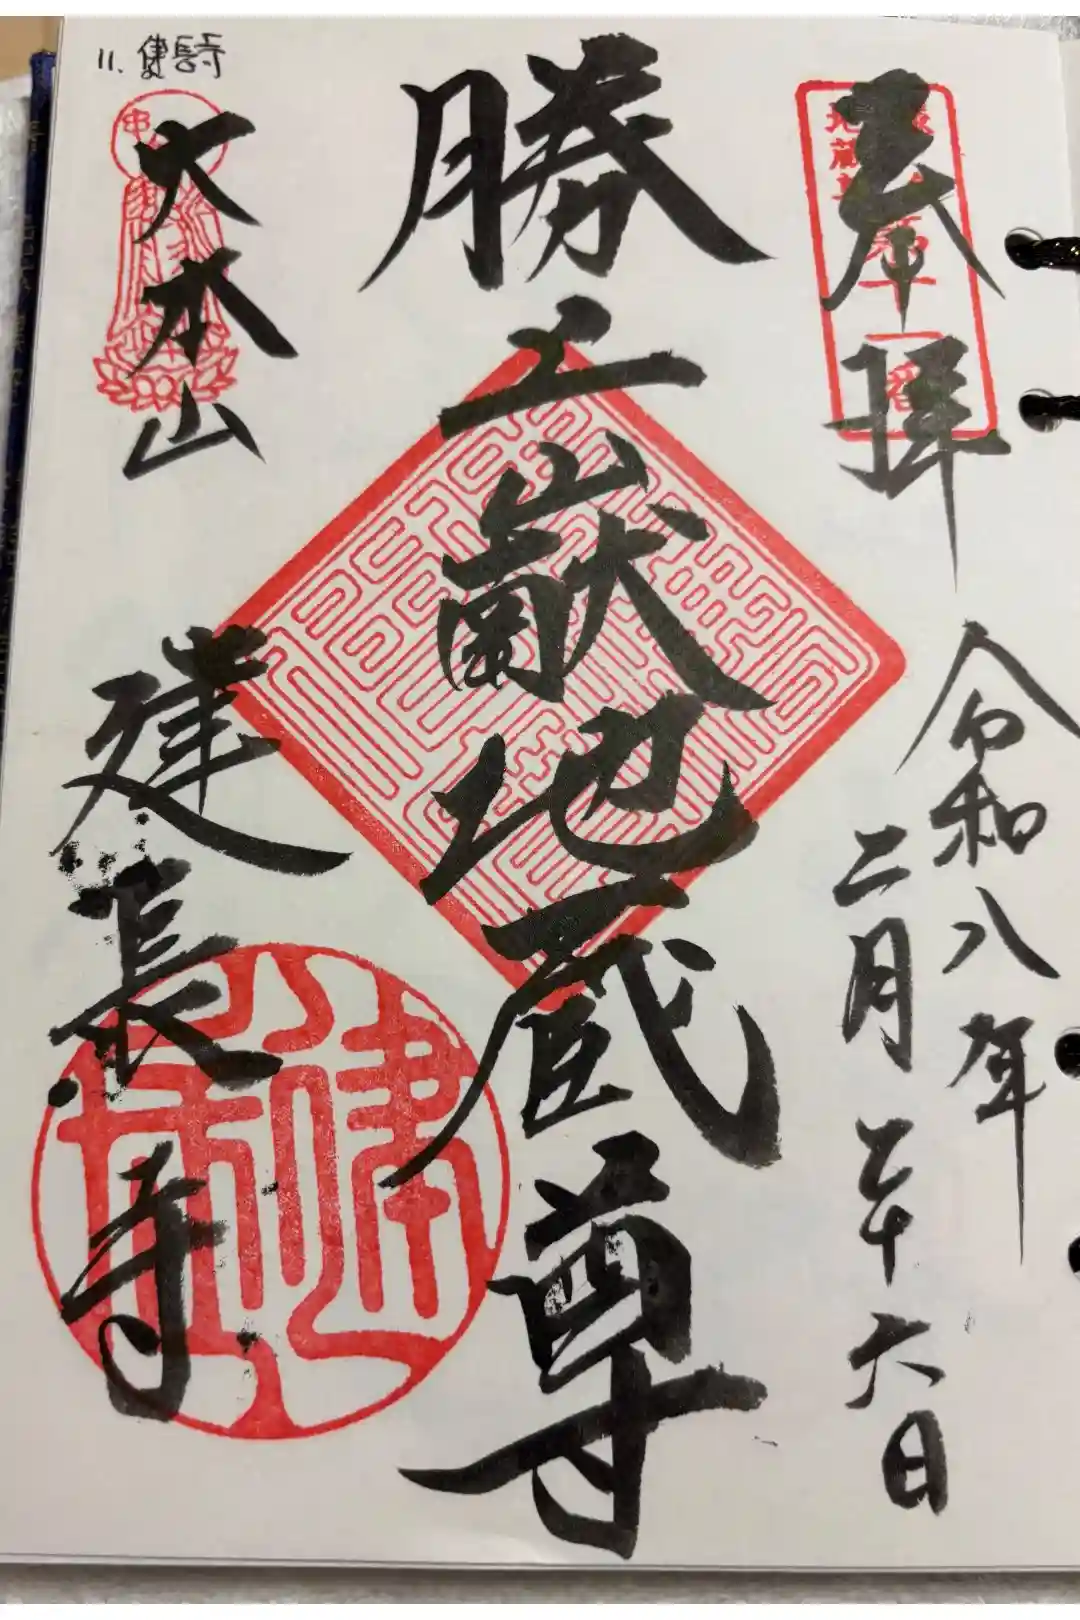 11. 建長寺
奉拝
令和八年
二月二十六日
勝上嶽地蔵尊
大本山
建長寺